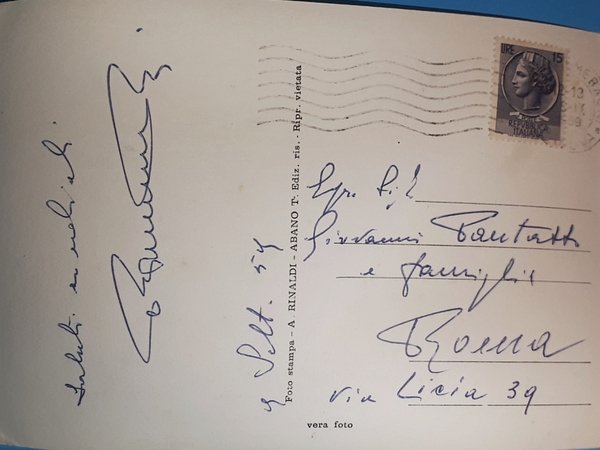 saluti cordiali
LIRE 15
REPUBBLICA
ITALIANA
13
IX
Foto stampa - A RINALDI - ABANO T. - Ediz. ris. - Ripr. vietata
9 Sett. 59
Giovanni
e famiglia
Roma
via Licia 39
vera foto